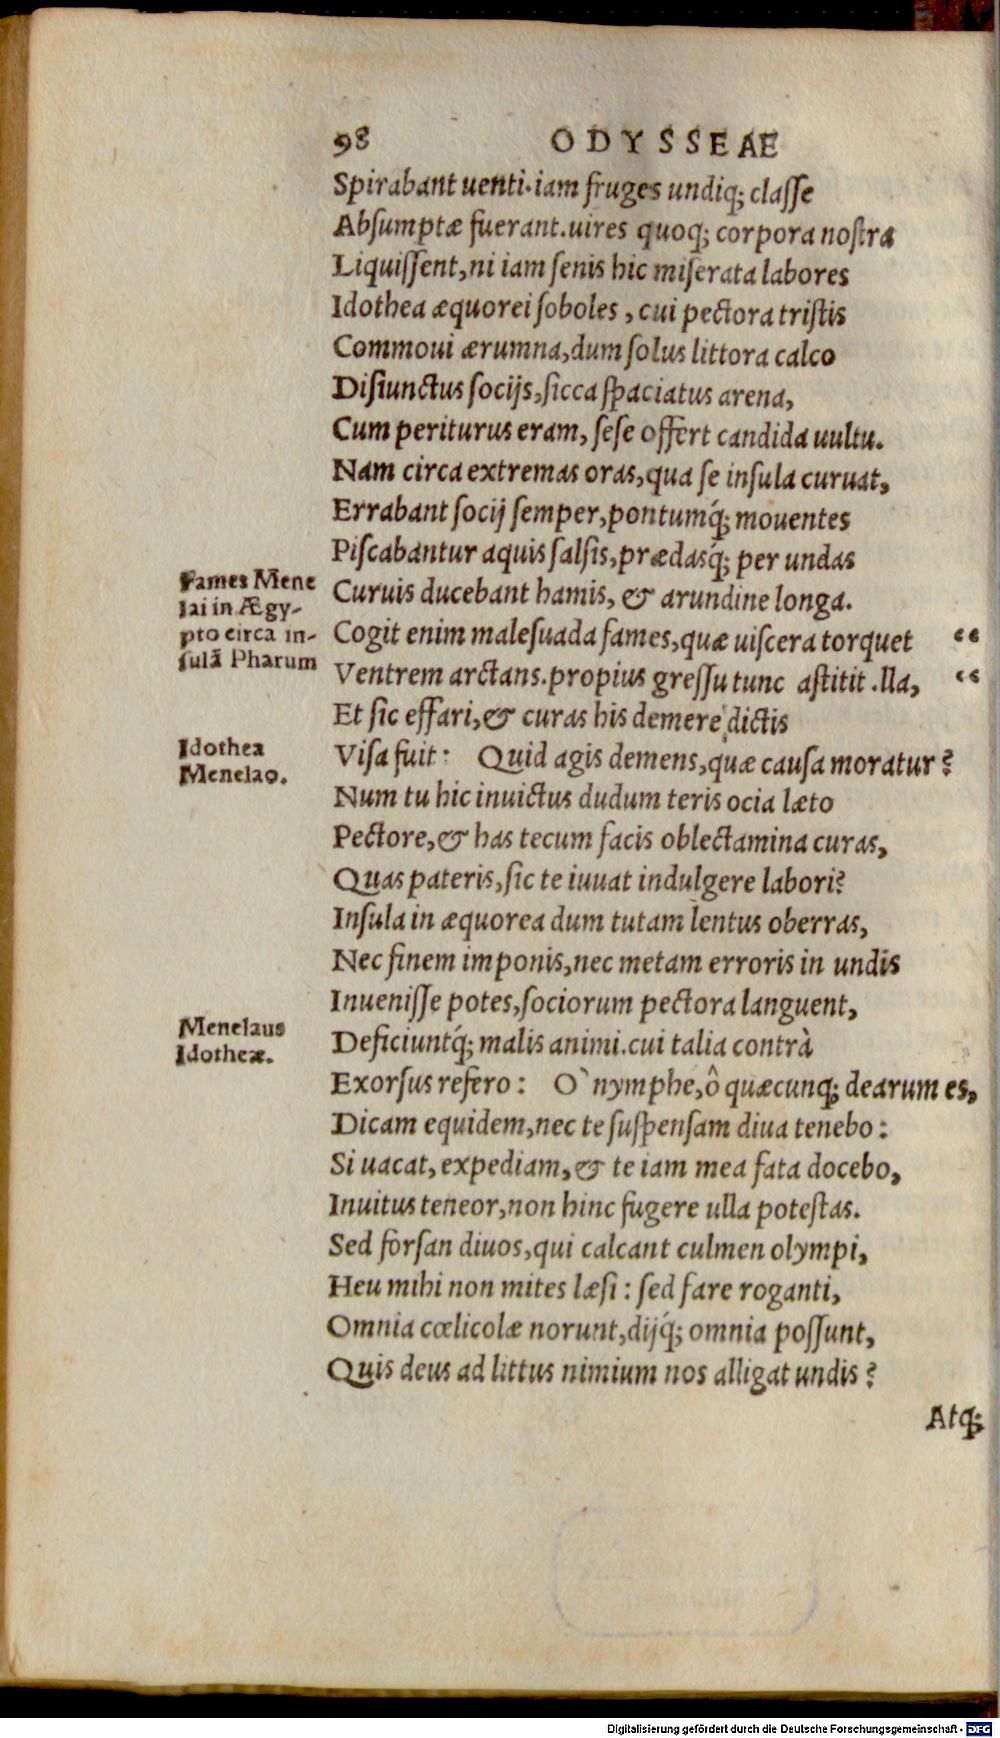 98 ODYSSEAE
Spirabant uenti.iam fruges undiq; classe
Absumptæ fuerant.uires quoq; corpora nostra
Liquissent,ni iam senis hic miserata labores
Idothea æquorei soboles, cui pectora tristis
Commoui ærumna,dum solus littora calco
Disiunctus socijs,sicca spaciatus arena,
Cum periturus eram, sese offert candida uultu.
Nam circa extremas oras,qua se insula curuat,
Errabant socij semper,pontumq́; mouentes
Piscabantur aquis salsis,prædasq́; per undas
Fames Mene
lai in Ægy-
pto circa in-
sulã Pharum
Curuis ducebant hamis, & arundine longa.
Cogit enim malesuada fames,quæ uiscera torquet “
Ventrem arctans.propius gressu tunc astitit .lla, “
Et sic effari,& curas his demere dictis
Idothea
Menelao.
Visa fuit: Quid agis demens,quæ causa moratur?
Num tu hic inuictus dudum teris ocia læto
Pectore,& has tecum facis oblectamina curas,
Quas pateris,sic te iuuat indulgere labori?
Insula in æquorea dum tutam lentus oberras,
Nec finem imponis,nec metam erroris in undis
Inuenisse potes,sociorum pectora languent,
Menelaus
Idotheæ.
Deficiuntq́; malis animi.cui talia contrà
Exorsus refero: O` nymphe,ô quæcunq; dearum es,
Dicam equidem,nec te suspensam diua tenebo:
Si uacat, expediam, & te iam mea fata docebo,
Inuitus teneor,non hinc fugere ulla potestas.
Sed forsan diuos,qui calcant culmen olympi,
Heu mihi non mites læsi: sed fare roganti,
Omnia cœlicolæ norunt,dijq́; omnia possunt,
Quis deus ad littus nimium nos alligat undis?
Atq;
Digitalisierung gefördert durch die Deutsche Forschungsgemeinschaft - DFG